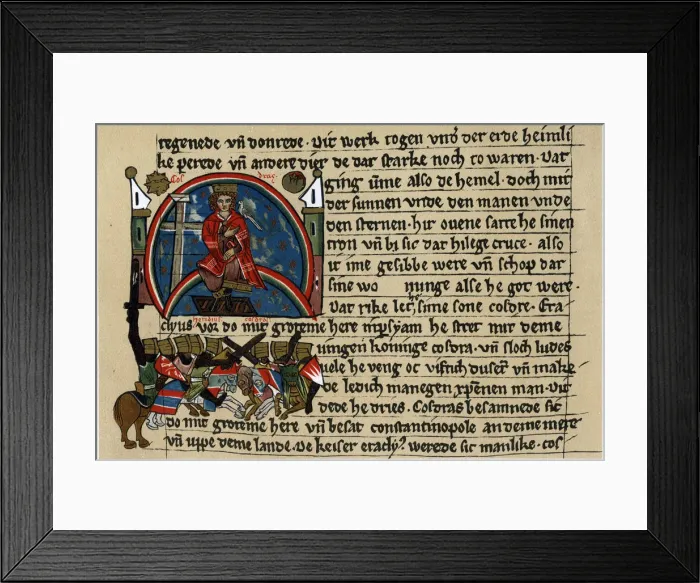 regenede vn̄ donrede. Dit werk togen vnd̕ der erde heimli
ke perede vn̄ andere dier de dar starke noch to waren. Dat
Cos dras.
ging vm̄e also de hemel. doch mit
der sunnen vnde den manen vnde
den sternen. hir ouene satte he sinen
tron vn̄ bi sic dat hilege cruce. also
it ime gesibbe were vn̄ schop dat
sine wo nunge alse he got were.
Dat rike let he sime sone cosdre. Era
cosdras
clius voz do mit groteme here in p̄syam he stret mit deme
iungen koninge cosdra. vn̄ sloch ludes
uele he veng oc vifhich dusent vn̄ make
de ledich manegen xp̄enen man. Dit
dede he dries. Cosdras besamnede sic
do mit groteme here vn̄ besat constantinopole an deme mere
vn̄ uppe deme lande. De keiser eracly᾽ werede sic manlike. cos